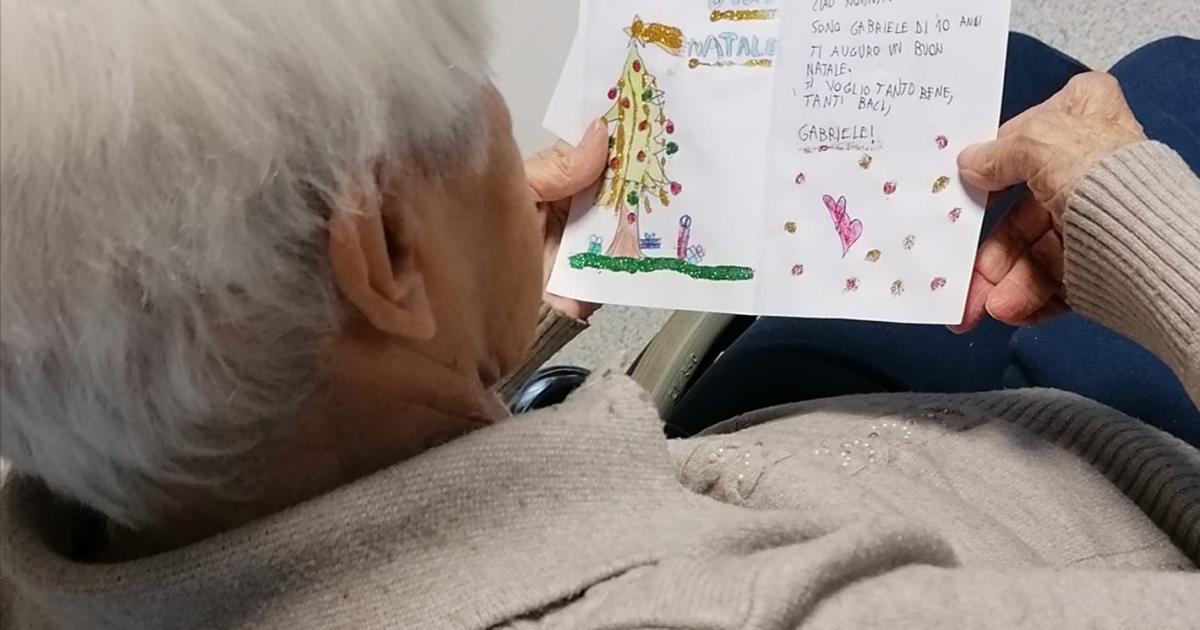 NATALE
SONO GABRIELE DI 10 ANNI
TI AUGURO UN BUON
NATALE.
TI VOGLIO TANTO BENE,
TANTI BACI,
GABRIELE!